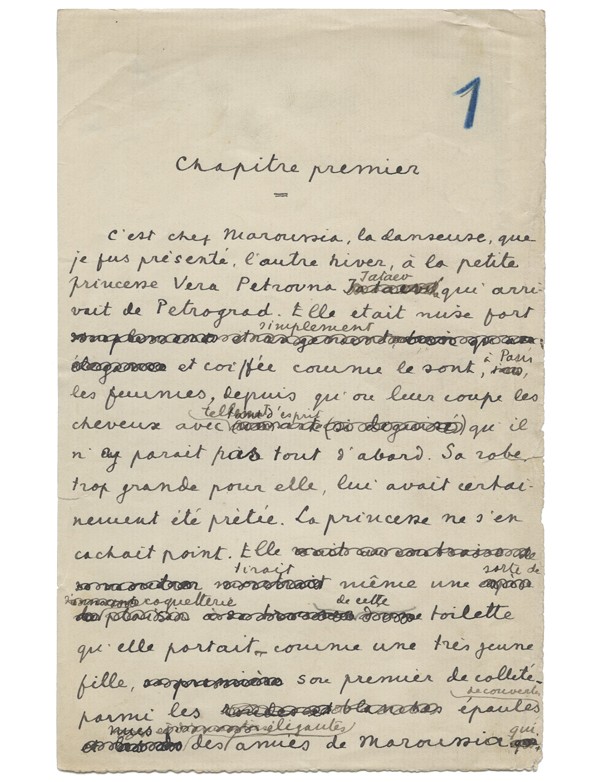 1
Chapitre premier
C'est chez Maroussia, la danseuse, que
je fus présenté, l'autre hiver, à la petite
Tataev
princesse Vera Petrovna qui arri-
vait de Petrograd. Elle était mise fort
simplement
et coiffée comme le sont, à Paris
les femmes, depuis qu'on leur coupe les
tellement d'esprit
cheveux avec qu'il
n'y parait pas tout d'abord. Sa robe
trop grande pour elle, lui avait certai-
nement été prêtée. La princesse ne s'en
cachait point. Elle
tirait même une sorte de
coquetterie de cette toilette
qu'elle portait comme une très jeune
fille, son premier décolleté
parmi les épaules découvertes
nues élégantes
des amies de Maroussia qui